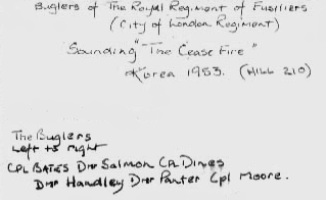 Buglers of The Royal Regiment of Fusiliers
(City of London Regiment)
Sounding "The Cease Fire"
Korea 1953. (HILL 210)
The Buglers
Left to right
CPL BATES Dmr Salmon CPL Dines
Dmr Handley Dmr Panter Cpl Moore.